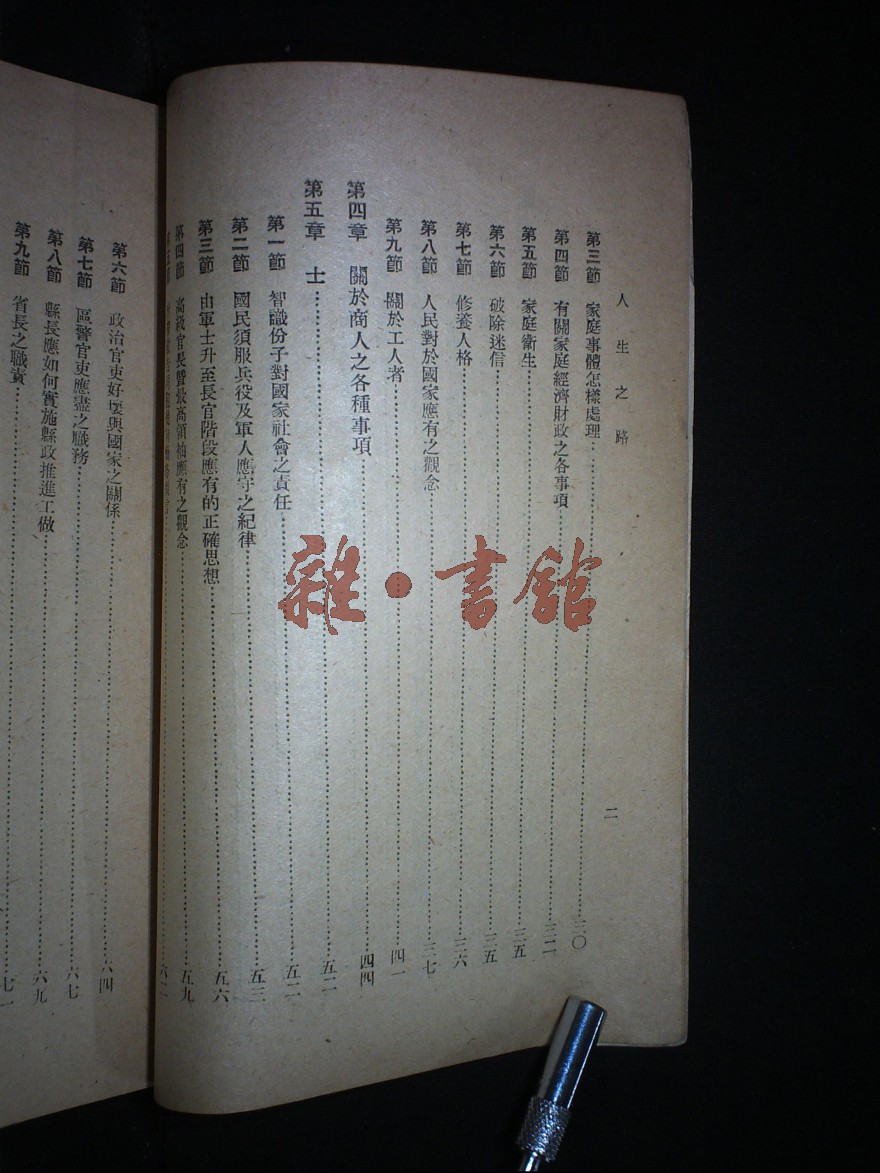 人生之路
二
第三節 家庭事體怎樣處理……三〇
第四節 有關家庭經濟財政之各事項……三二
第五節 家庭衛生……三五
第六節 破除迷信……三五
第七節 修養人格……三六
第八節 人民對於國家應有之觀念……三七
第九節 關於工人者……四一
第四章 關於商人之各種事項……四四
第五章 士……五二
第一節 智識份子對國家社會之責任……五二
第二節 國民須服兵役及軍人應守之紀律……五三
第三節 由軍士升至長官階段應有的正確思想……五六
第四節 高級官長暨最高領袖應有之觀念……五九
第六節 政治官吏好壞與國家之關係……六四
第七節 區警官吏應盡之職務……六七
第八節 縣長應如何實施縣政推進工做……六九
第九節 省長之職責……七一
雜·書館